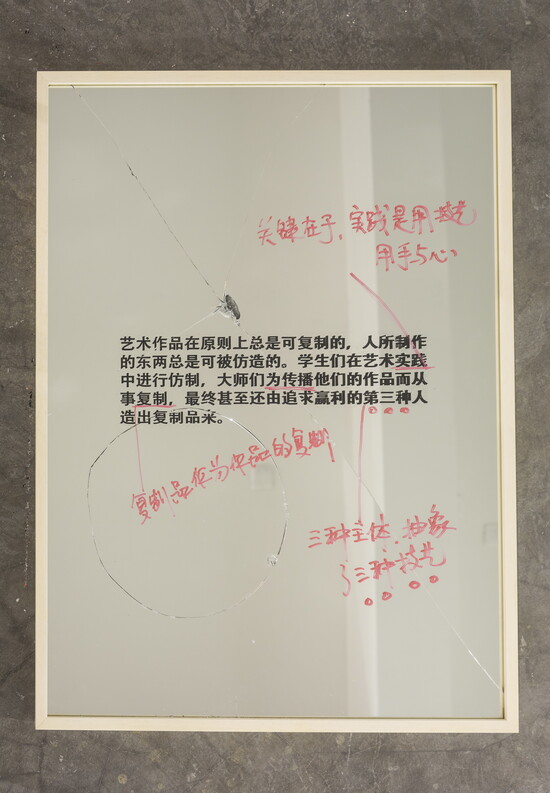 关键在于，实践是用技艺
用手与心
艺术作品在原则上总是可复制的，人所制作
的东西总是可被仿造的。学生们在艺术实践
中进行仿制，大师们为传播他们的作品而从
事复制，最终甚至还由追求赢利的第三种人
造出复制品来。
复制品作为作品的复制
三种主体，抽象
了三种技艺